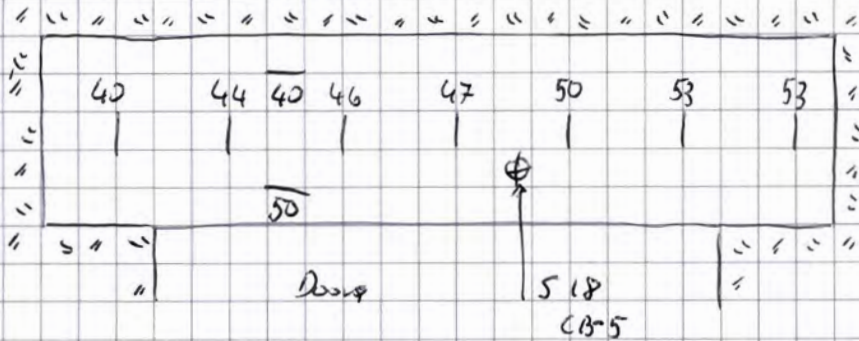 40 44 40 46 47 50 53 53
50
518
CB-5